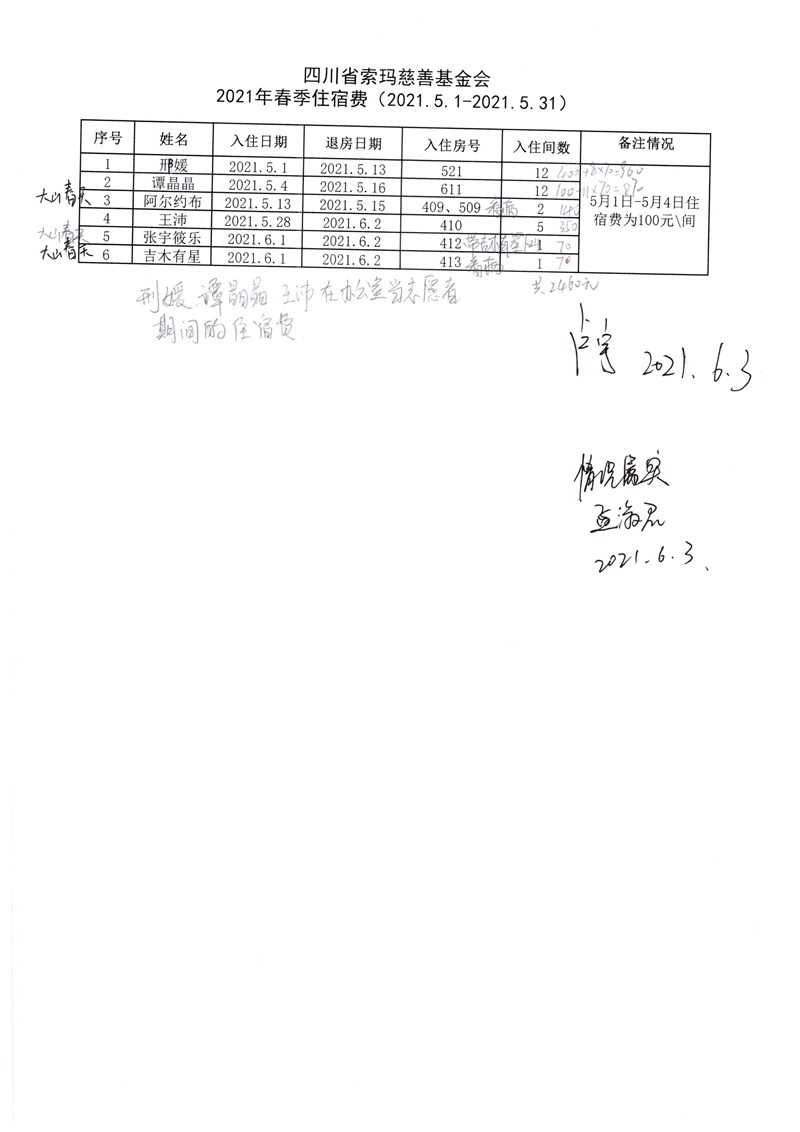 四川省索玛慈善基金会
2021年春季住宿费（2021.5.1-2021.5.31）
序号 姓名 入住日期 退房日期 入住房号 入住间数 备注情况
1 邢媛 2021.5.1 2021.5.13 521 12 400+8×70=960
2 谭晶晶 2021.5.4 2021.5.16 611 12 100+11×70=870
大山春天 3 阿尔约布 2021.5.13 2021.5.15 409、509 看病 2 140
5月1日-5月4日住
宿费为100元\间
4 王沛 2021.5.28 2021.6.2 410 5 350
大山春天 5 张宇筱乐 2021.6.1 2021.6.2 412 1 70
大山春天 6 吉木有星 2021.6.1 2021.6.2 413 看病 1 70
共2460元
刑媛、谭晶晶 王沛 在办公室当志愿者
期间的住宿费
2021.6.3
情况属实
2021.6.3